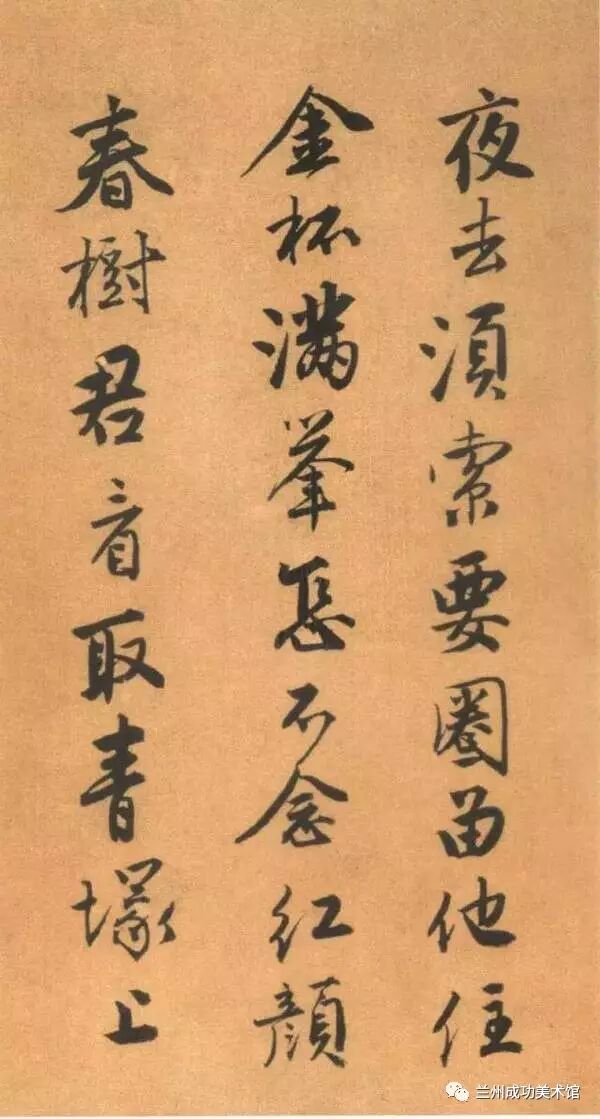 夜去須索要圈留他住
金杯滿举怎不念紅顔
春樹君看取青塚上
兰州成功美术馆